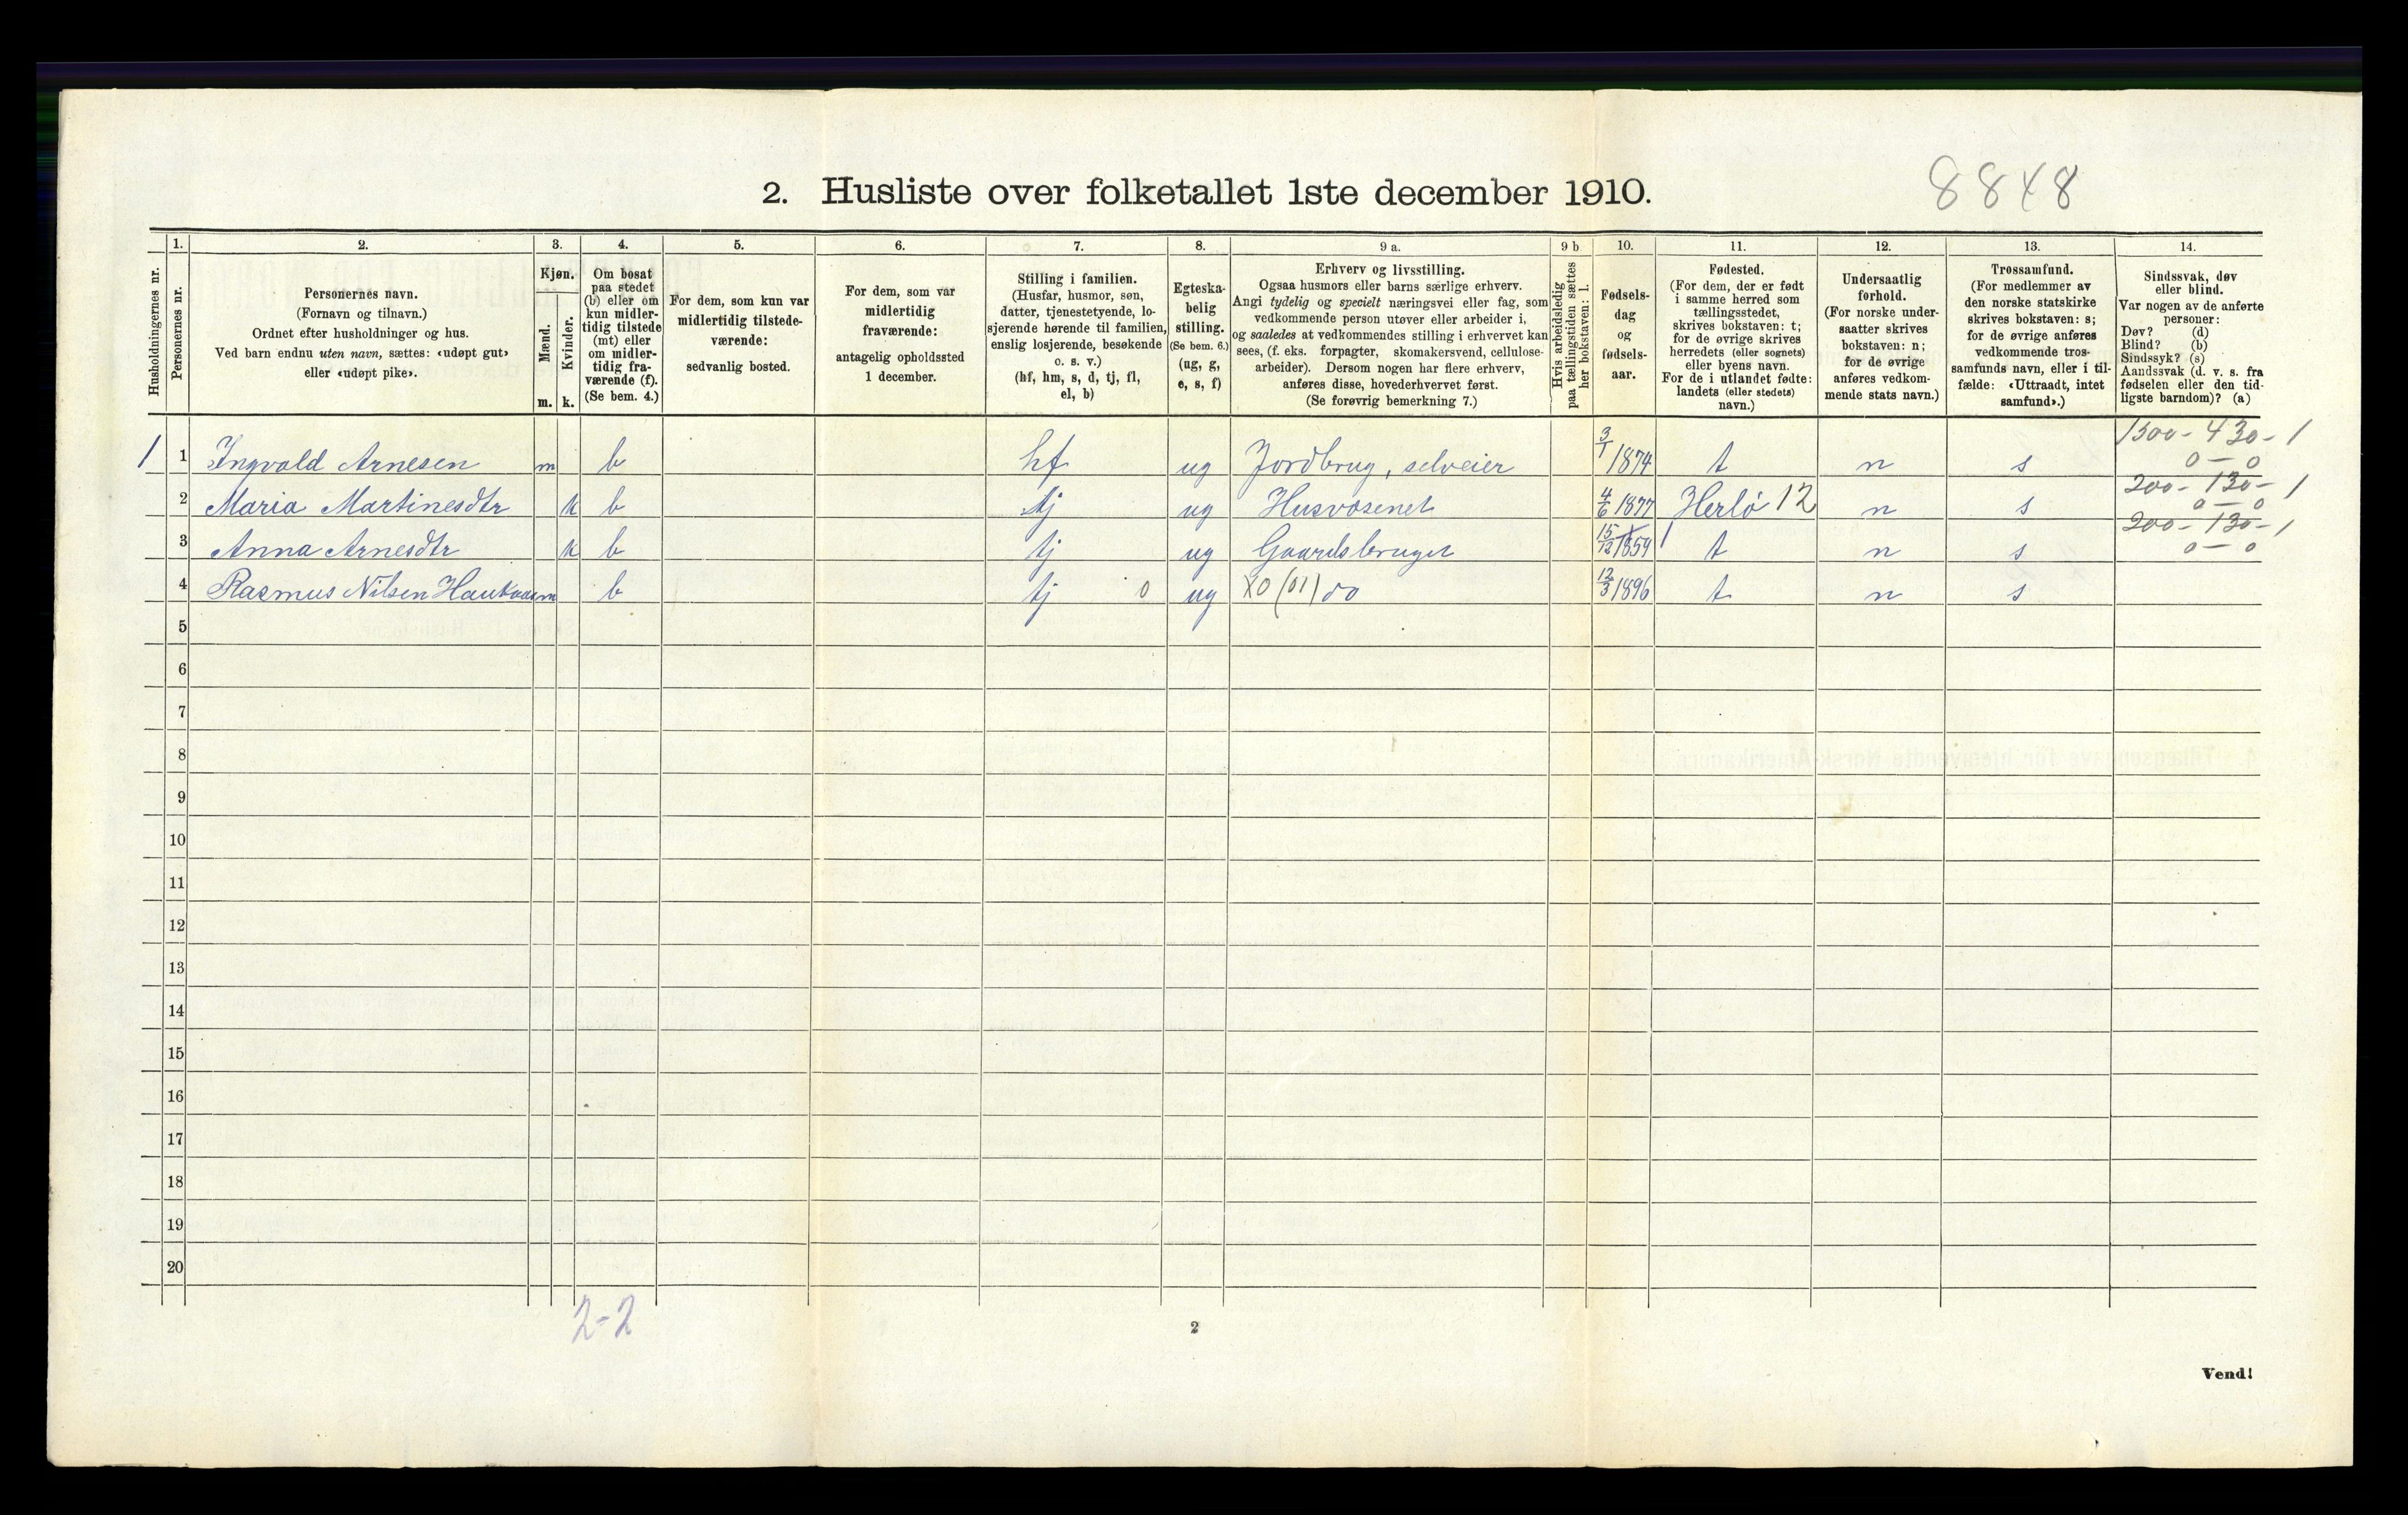 8848
2. Husliste over folketallet 1ste december 1910.
Husholdningernes nr.
1.
Personernes nr.
2.
Personernes navn.
(Fornavn og tilnavn.)
Ordnet efter husholdninger og hus.
Ved barn endnu uten navn, sættes: «udøpt gut»
eller «udøpt pike».
3.
Kjøn.
Mænd.
Kvinder.
m. k.
4.
Om bosat
paa stedet
(b) eller om
kun midler-
tidig tilstede
(mt) eller
om midler-
tidig fra-
værende (f).
(Se bem. 4.)
5.
For dem, som kun var
midlertidig tilstede-
værende:
sedvanlig bosted.
6.
For dem, som var
midlertidig
fraværende:
antagelig opholdssted
1 december.
7.
Stilling i familien.
(Husfar, husmor, søn,
datter, tjenestetyende, lo-
sjerende hørende til familien,
enslig losjerende, besøkende
o. s. v.)
(hf, hm, s, d, tj, fl,
el, b)
8.
Egteska-
belig
stilling.
(Se bem. 6.)
(ug, g,
e, s, f)
9 a.
Erhverv og livsstilling.
Ogsaa husmors eller barns særlige erhverv.
Angi tydelig og specielt næringsvei eller fag, som
vedkommende person utøver eller arbeider i,
og saaledes at vedkommendes stilling i erhvervet kan
sees, (f. eks. forpagter, skomakersvend, cellulose-
arbeider). Dersom nogen har flere erhverv,
anføres disse, hovederhvervet først.
(Se forøvrig bemerkning 7.)
9 b
Hvis arbeidsledig
paa tællingstiden sættes
her bokstaven: l.
10.
Fødsels-
dag
og
fødsels-
aar.
11.
Fødested.
(For dem, der er født
i samme herred som
tællingsstedet,
skrives bokstaven: t;
for de øvrige skrives
herredets (eller sognets)
eller byens navn.
For de i utlandet fødte:
landets (eller stedets)
navn.)
12.
Undersaatlig
forhold.
(For norske under-
saatter skrives
bokstaven: n;
for de øvrige
anføres vedkom-
mende stats navn.)
13.
Trossamfund.
(For medlemmer av
den norske statskirke
skrives bokstaven: s;
for de øvrige anføres
vedkommende tros-
samfunds navn, eller i til-
fælde: «Uttraadt, intet
samfund».)
14.
Sindssvak, døv
eller blind.
Var nogen av de anførte
personer:
Døv? (d)
Blind? (b)
Sindssyk? (s)
Aandssvak (d. v. s. fra
fødselen eller den tid-
ligste barndom)? (a)
1 1 Ingvald Arnesen m b hf ug Jordbrug, selveier 3/1 1874 t n s 1500-430-1 0-0
2 Maria Martinesdtr k b tj ug Husvæsenet 4/6 1877 Herlø 12 n s 200-130-1 0-0
3 Anna Arnesdtr k b tj ug Gaardsbruget 15/12 1859 t n s 200-130-1 0-0
4 Rasmus Nilsen m b tj 0 ug X0 (01) do 12/3 1896 t n s
5
6
7
8
9
10
11
12
13
14
15
16
17
18
19
20
2-2
2
Vend!